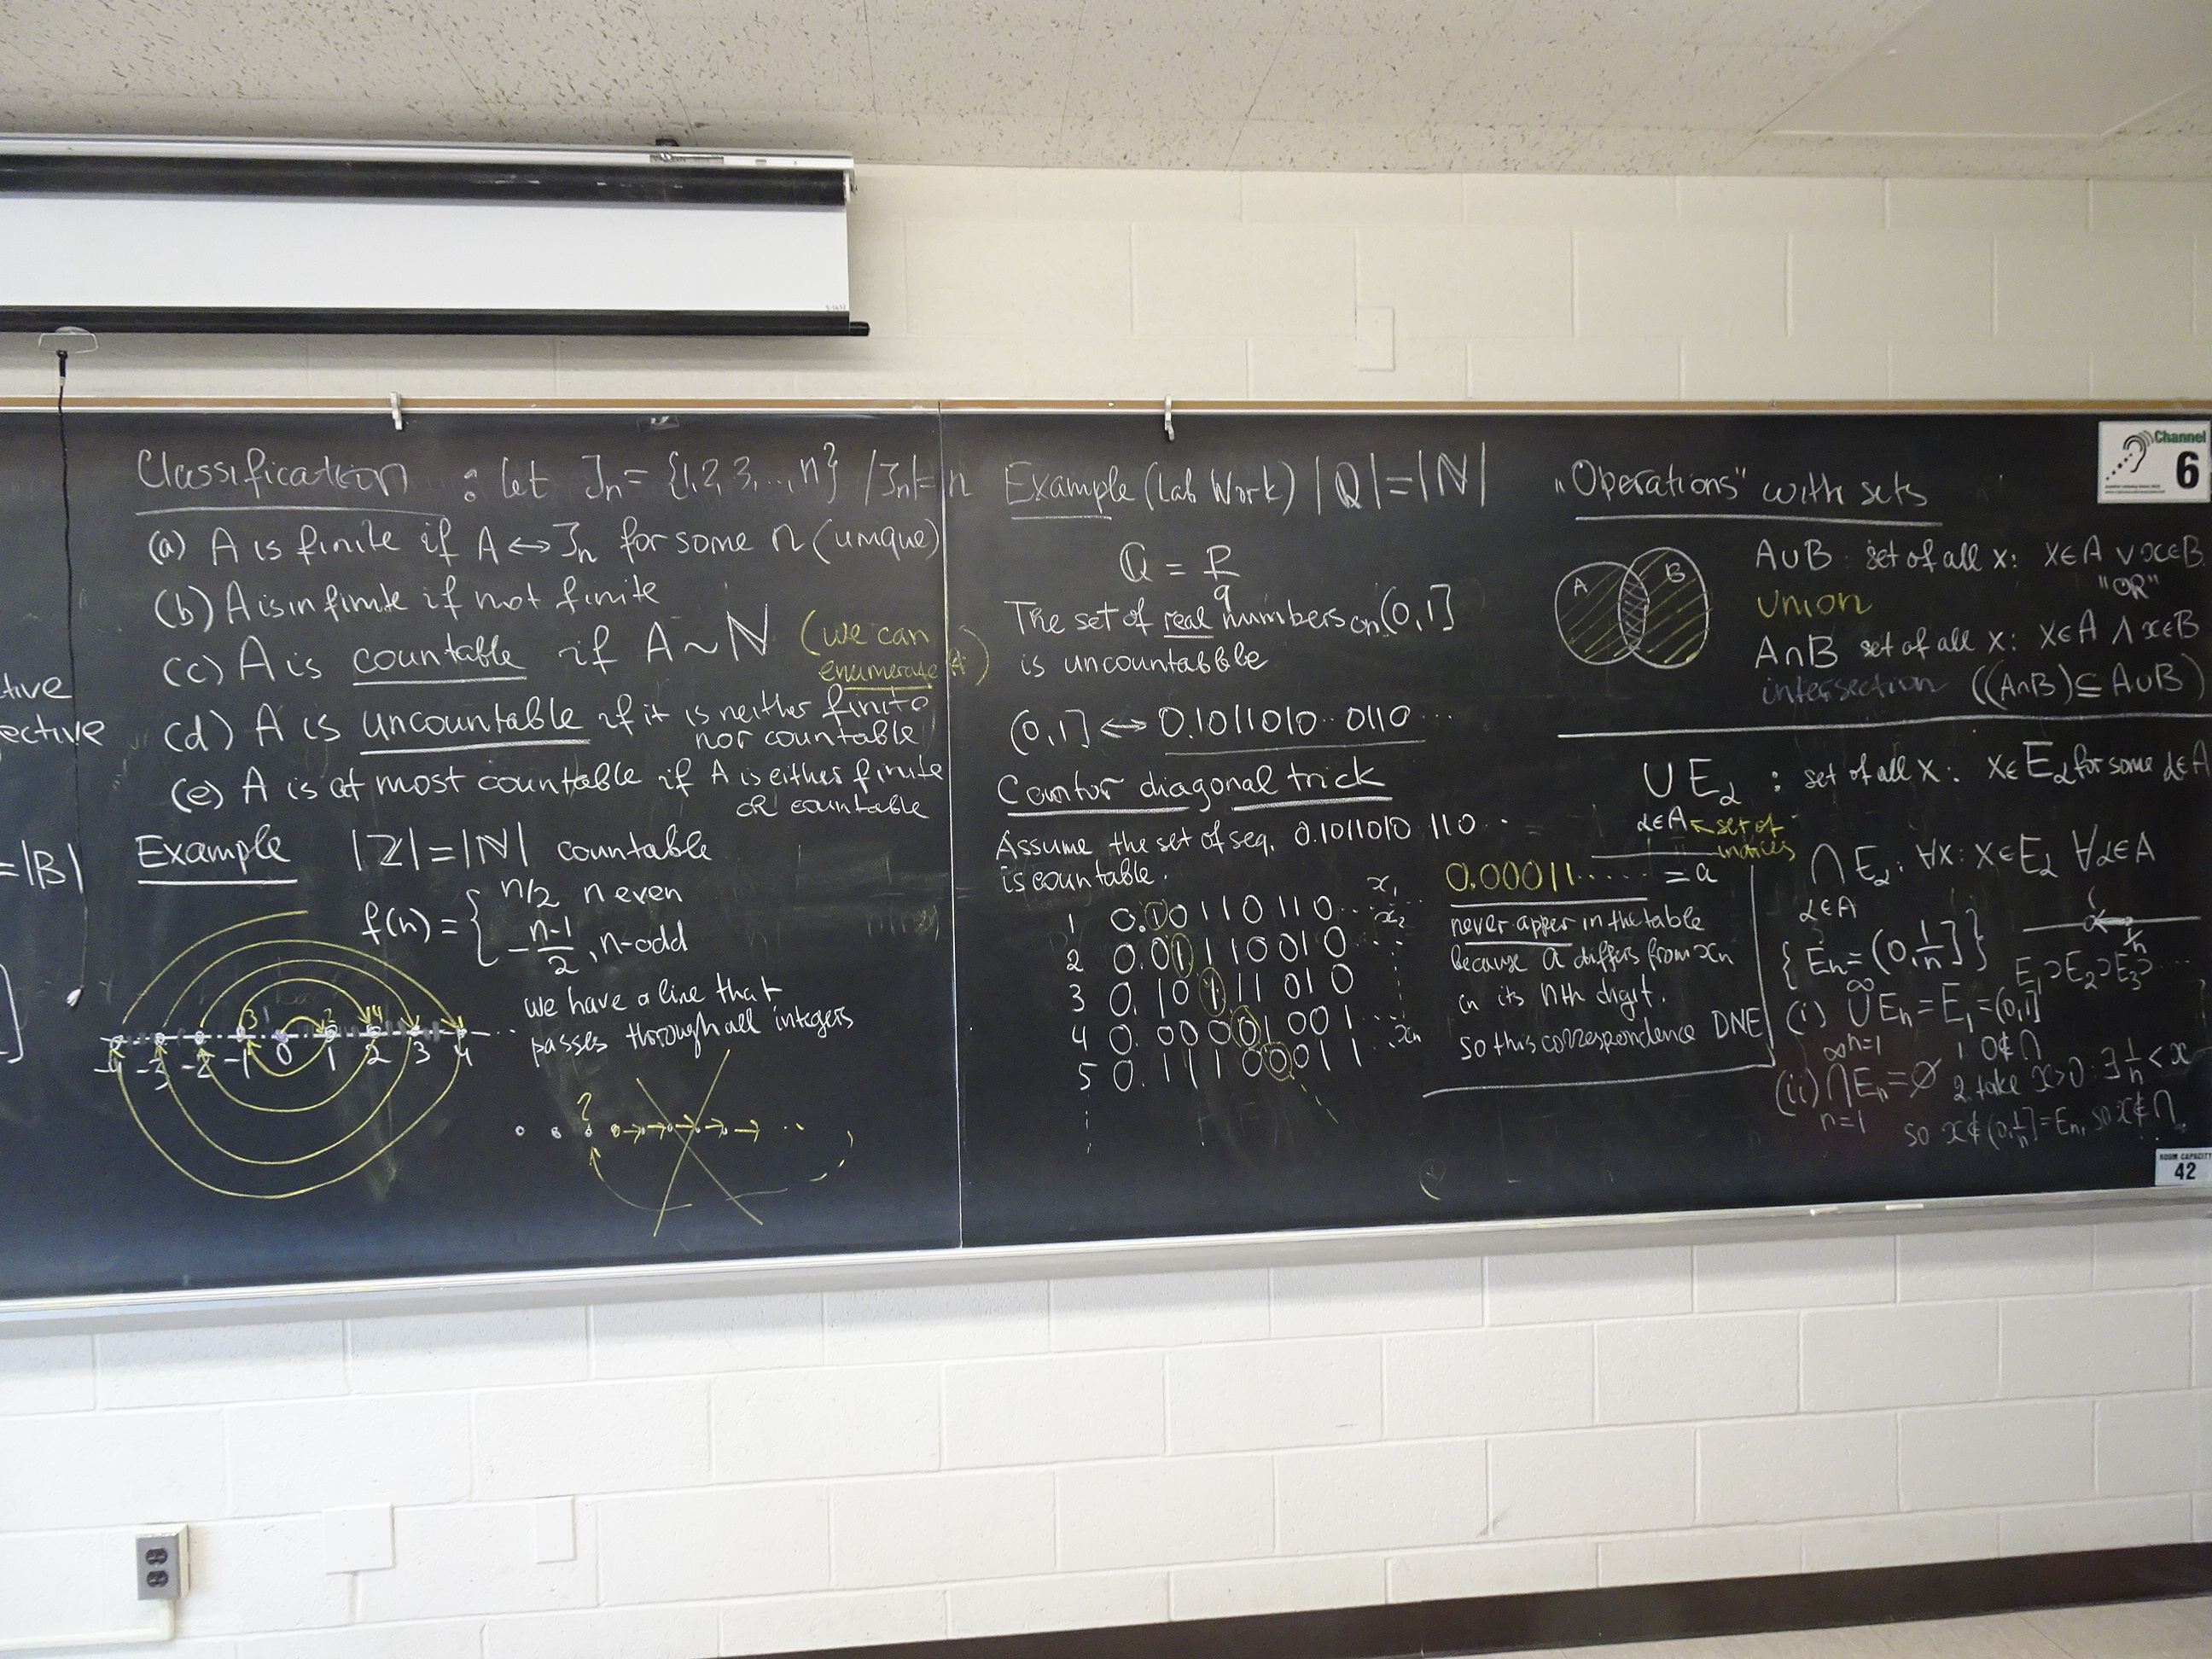 tive
ective
=|B|
Classification : let Jn = {1,2,3,...,n} |Jn|=n
(a) A is finite if A ↔ Jn for some n (unique)
(b) A is infinite if not finite
(c) A is countable if A ~ ℕ (we can
enumerate A)
(d) A is uncountable if it is neither finite
nor countable
(e) A is at most countable if A is either finite
OR countable
Example |ℤ|=|ℕ| countable
f(n) = { n/2 n even
-n-1/2, n-odd
we have a line that
passes through all integers
-4 -3 -2 -1 0 1 2 3 4 ...
3 1 2 4
?
Example (Lab Work) |ℚ|=|ℕ|
ℚ = p/q
The set of real numbers on (0,1]
is uncountabble
(0,1] ↔ 0.1011010..0110...
Cantor diagonal trick
Assume the set of seq. 0.1011010 110..
is countable.
1 0.10110110... x1
2 0.01110010... x2
3 0.10111010 ...
4 0.00001001... xn
5 0.11100011...
0.00011..... = a
never apper in the table
because a differs from xn
in its nth digit.
so this correspondence DNE
"Operations" with sets
A B
A∪B : set of all x: x∈A ∨ x∈B
"OR"
Union
A∩B set of all x: x∈A ∧ x∈B
intersection ((A∩B)⊆A∪B)
∪Eα : set of all x: x∈Eα for some α∈A
α∈A ← set of
indices
∩Eα: ∀x: x∈Eα ∀α∈A
α∈A
{En=(0,1/n]}
1/n
E1⊃E2⊃E3⊃...
(i) ∞∪n=1 En=E1=(0,1]
(ii) ∞∩n=1 En=∅
1 0∉∩
2. take x>0: ∃ 1/n < x
so x∉(0,1/n]=En, so x∉∩
Channel
6
ROOM CAPACITY
42